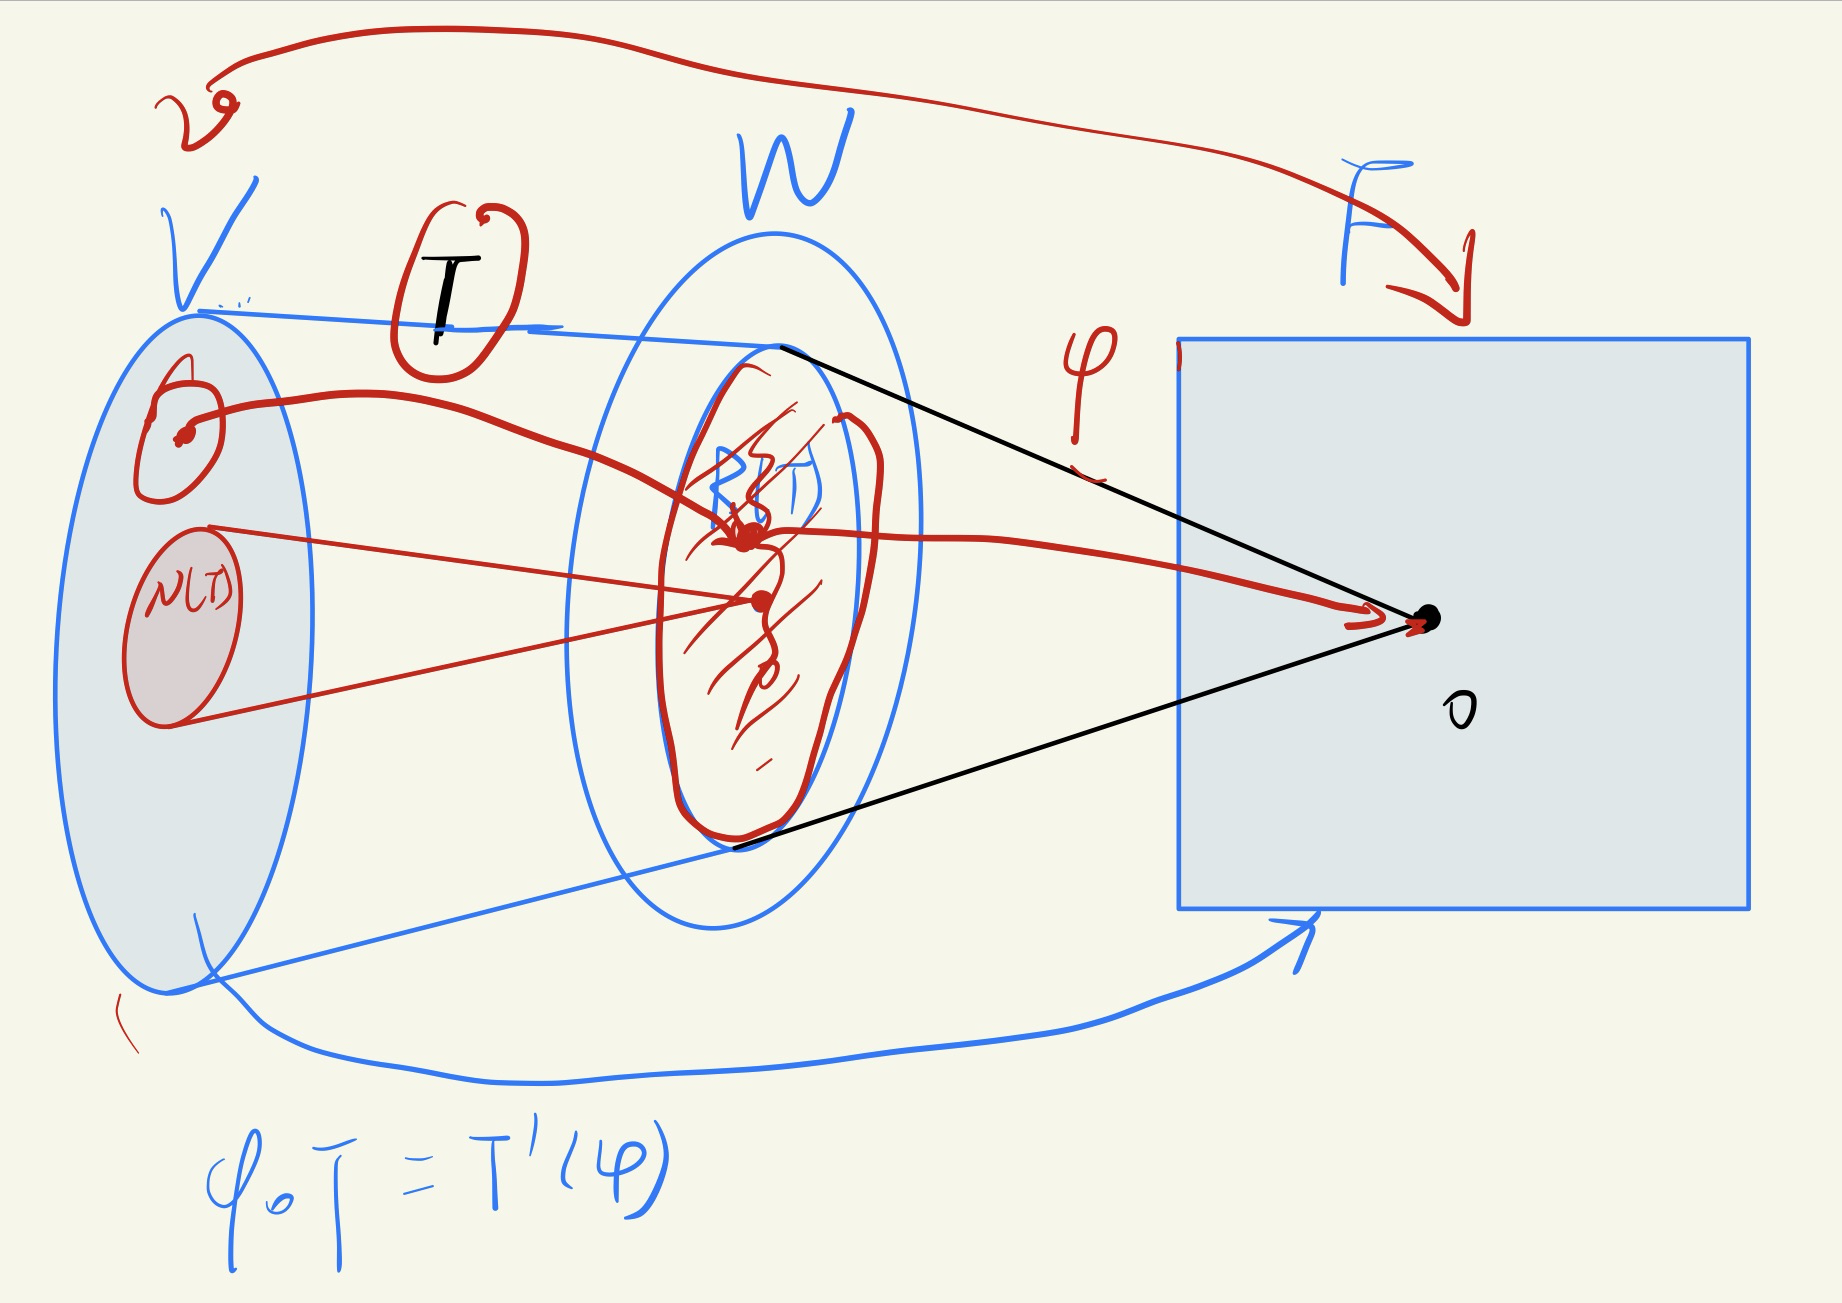 v
W
F
V
T
φ
R(T)
N(T)
0
φ∘T = T'(φ)